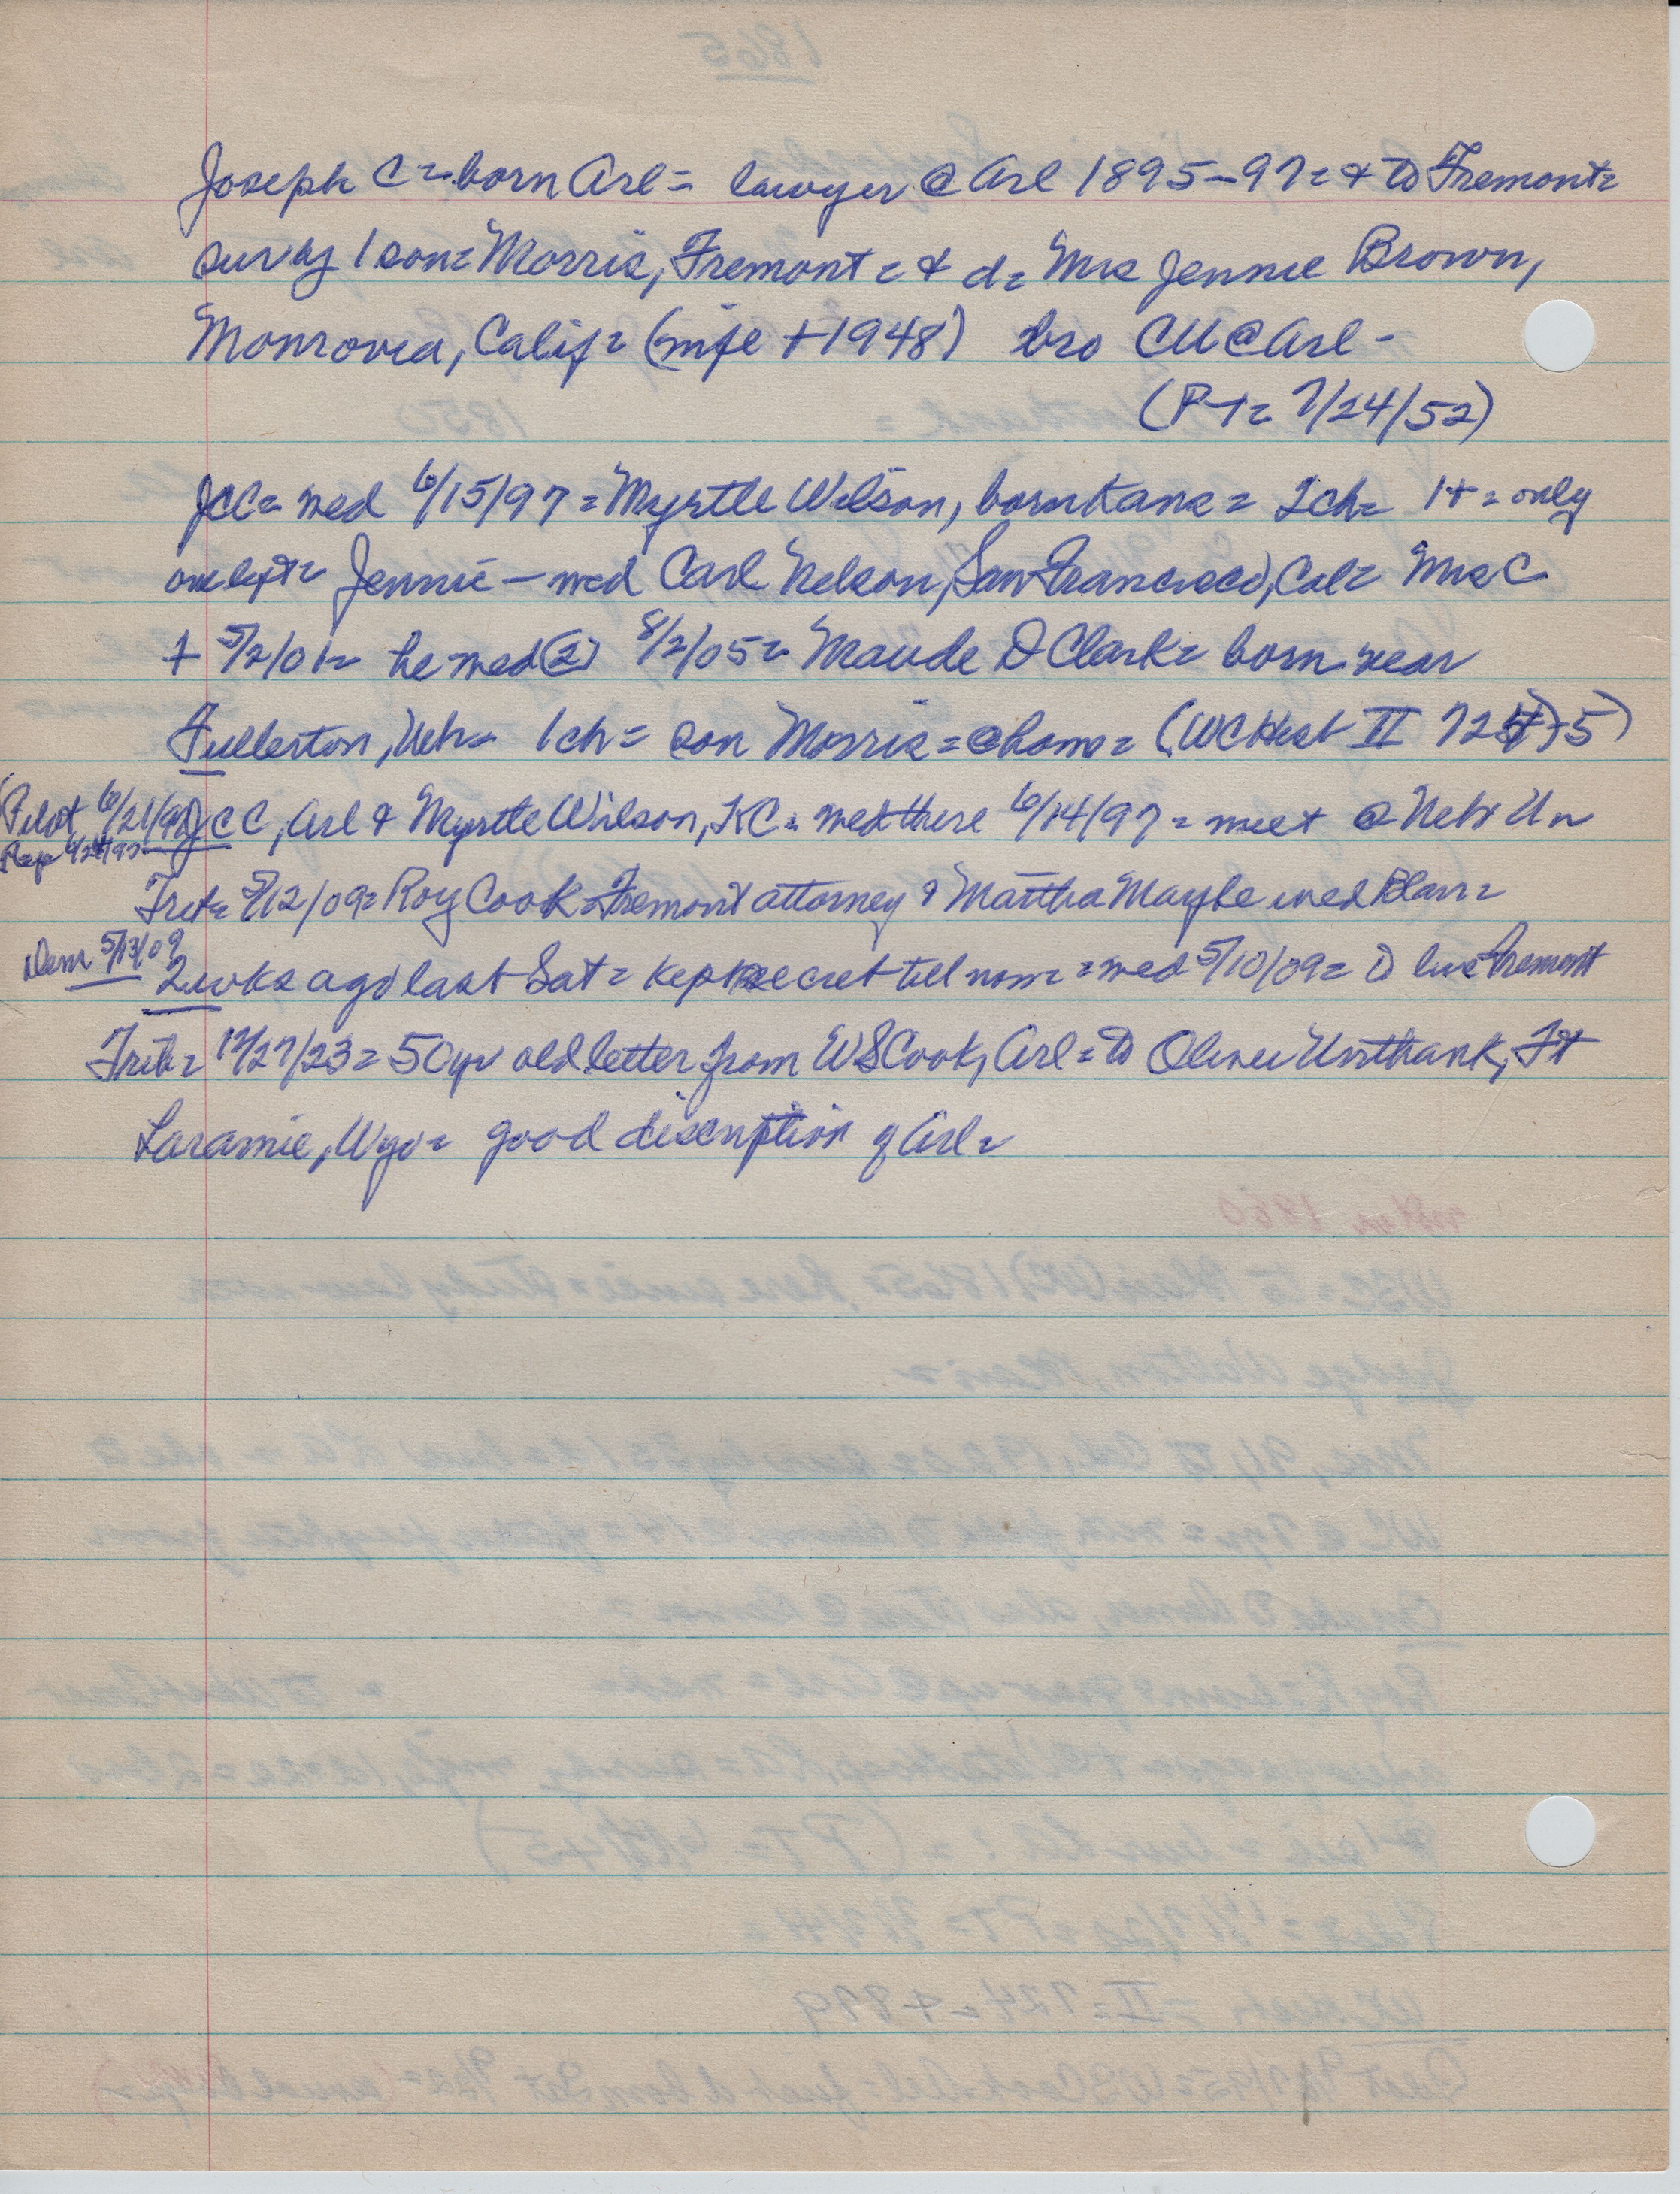 Joseph C = born Arl = lawyer @ Arl 1895-97 = & to Fremont =
surv by 1 son = Morris, Fremont = & d = Mrs Jennie Brown,
Monrovia, Calif = (wife + 1948) bro CM @ Arl -
(PT = 7/24/52)
JCC = wed 6/15/97 = Myrtle Wilson, born Kans = 2ch = 1+ = only
one left = Jennie - wed Carl Nelson, San Francisco, Cal = Mrs C
+ 5/2/01 = he wed (2) 8/2/05 = Maude D Clark = born near
Fullerton, Neb = 1ch = son Morris = @ home = (WC Hist II 724)-5)
(Pilot 6/21/97) JCC, Arl & Myrtle Wilson, KC = wed there 6/14/97 = meet @ Neb Un
Rep
Trib = 5/12/09 = Roy Cook = Fremont attorney & Martha Maybe wed Blair =
Dem 5/13/09
2 wks ago last Sat = kept secret till now = wed 5/10/09 = to live Fremont
Trib = 12/27/23 = 50 yr old letter from WS Cook, Arl = to Oliver Unthank, Ft
Laramie, Wyo = good discription of Arl =